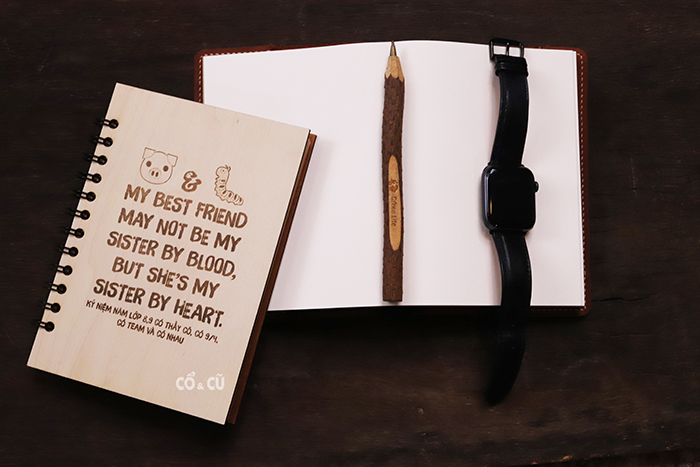 &
MY BEST FRIEND
MAY NOT BE MY
SISTER BY BLOOD,
BUT SHE'S MY
SISTER BY HEART.
KỶ NIỆM NĂM LỚP 8,9 CÓ THẦY CÔ, CÓ 9/1,
CÓ TEAM VÀ CÓ NHAU
CỔ & CŨ